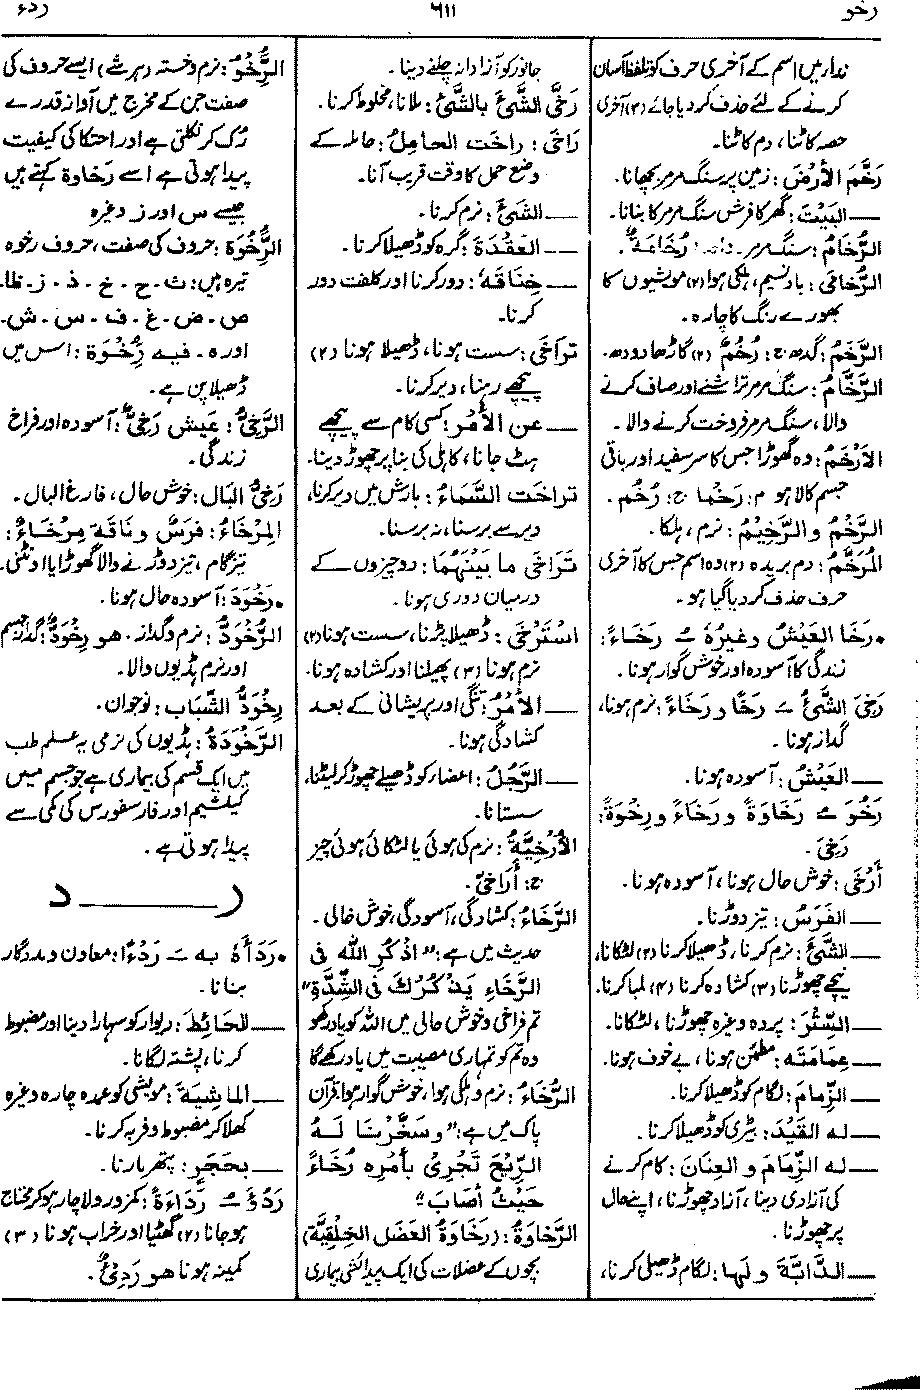 رخو
۶۱۱
ردء
ندا میں اسم کے آخری حرف کو تلفظاً آسان
کرنے کے لئے حذف کر دیا جائے (۲) آخری
حصہ کاٹنا، دم کاٹنا۔
رَخَّمَ الأرْضَ: زمین پر سنگ مرمر بچھانا۔
— البَیْتَ: گھر کا فرش سنگ مرمر کا بنانا۔
الرُّخَامُ: سنگ مرمر۔ واحد: رُخَامَةٌ۔
الرُّخَامَى: بادِ نسیم، ہلکی ہوا (۲) مویشیوں کا
بھورے رنگ کا چارہ۔
الرَّخَمُ: گدھ ج: رُخُمٌ (۲) گاڑھا دودھ۔
الرَّخَّامُ: سنگ مرمر تراشنے اور صاف کرنے
والا، سنگ مرمر فروخت کرنے والا۔
الأَرْخَمُ: وہ گھوڑا جس کا سر سفید اور باقی
جسم کالا ہو م: رَخْمَا ج: رُخْم۔
الرَّخْمُ والرَّخِیْمُ: نرم، ہلکا۔
المُرَخَّمُ: دم بریدہ (۲) وہ اسم جس کا آخری
حرف حذف کر دیا گیا ہو۔
•رَخَا العَیْشُ وغیرُہٗ ـُ رَخَاءً:
زندگی کا آسودہ اور خوش گوار ہونا۔
رَخِیَ الشَّیْءُ ـَ رَخًا و رَخَاءً: نرم ہونا،
گداز ہونا۔
— العَیْشُ: آسودہ ہونا۔
رَخُوَ ـُ رَخَاوَةً و رَخَاءً و رِخْوَةً:
رَخِیَ۔
أَرْخَى: خوش حال ہونا، آسودہ ہونا۔
— الفَرَسُ: تیز دوڑنا۔
— الشَّیْءَ: نرم کرنا، ڈھیلا کرنا (۲) لٹکانا،
نیچے چھوڑنا (۳) کشادہ کرنا (۴) لمبا کرنا۔
— السِّتْرَ: پردہ وغیرہ چھوڑنا، لٹکانا۔
— عِمَامَتَه: مطمئن ہونا، بے خوف ہونا۔
— الزِّمَامَ: لگام کو ڈھیلا کرنا۔
— له القَیْدَ: بیڑی کو ڈھیلا کرنا۔
— له الزِّمَامَ و العِنَانَ: کام کرنے
کی آزادی دینا، آزاد چھوڑنا، اپنے حال
پر چھوڑنا۔
— الدَّابَّةَ و لَهَا: لگام ڈھیلی کرنا،
جانور کو آزادانہ چلنے دینا۔
رَخَّى الشَّیْءَ بالشَّیْءِ: ملانا، مخلوط کرنا۔
رَاخَى: راخت الحامِلُ: حاملہ کے
وضع حمل کا وقت قریب آنا۔
— الشَّیْءَ: نرم کرنا۔
— العُقْدَةَ: گرہ کو ڈھیلا کرنا۔
— خِنَاقَهٗ: دور کرنا اور کلفت دور
کرنا۔
تراخَى: سست ہونا، ڈھیلا ہونا (۲)
پیچھے رہنا، دیر کرنا۔
— عن الأَمْرِ: کسی کام سے پیچھے
ہٹ جانا، کاہلی کی بنا پر چھوڑ دینا۔
تراخت السَّمَاءُ: بارش میں دیر کرنا،
دیر سے برسنا، نہ برسنا۔
تَرَاخَى ما بَیْنَهُمَا: دو چیزوں کے
درمیان دوری ہونا۔
اسْتَرْخَى: ڈھیلا پڑنا، سست ہونا (۲)
نرم ہونا (۳) پھیلنا اور کشادہ ہونا۔
— الأَمْرُ: تنگی اور پریشانی کے بعد
کشادگی ہونا۔
— الرَّجُلُ: اعضار کو ڈھیلے چھوڑ کر لیٹنا،
سستانا۔
الأُرْخِیَّةُ: نرم کی ہوئی یا لٹکائی ہوئی چیز
ج: أَرَاخِیّ۔
الرَّخَاءُ: کشادگی، آسودگی، خوش حالی۔
حدیث میں ہے: "اُذْكُرِ الله فی
الرَّخَاءِ یَذْكُرُكَ فی الشِّدَّةِ"
تم فراخی و خوش حالی میں اللہ کو یاد رکھو
وہ تم کو تمہاری مصیبت میں یاد رکھے گا
الرُّخَاءُ: نرم و ہلکی ہوا، خوش گوار ہوا، قرآن
پاک میں ہے: "وسَخَّرْنَا لَهُ
الرِّیْحَ تَجْرِیْ بِأَمْرِهِ رُخَاءً
حَیْثُ أصَابَ"
الرَّخَاوَةُ: (رَخَاوَةُ العَضَلِ الخِلْقِیَّة)
بچوں کے عضلات کی ایک پیدائشی بیماری
الرَّخْوُ: نرم و خستہ (ہر شے) ایسے حروف کی
صفت جن کے مخرج میں آواز قدرے
رک کر نکلتی ہے اور احتکا کی کیفیت
پیدا ہوتی ہے اسے رخاوة کہتے ہیں
جیسے س اور ز وغیرہ
الرِّخْوَة: حروف کی صفت، حروف رخوہ
تیرہ ہیں: ث - ح - خ - ذ - ز - ظ -
ص - ض - غ - ف - س - ش -
اور ہ - فیه رِخْوَة: اس میں
ڈھیلا پن ہے۔
الرَّخِیُّ: عَیش رَخِیٌّ: آسودہ اور فراخ
زندگی۔
رَخِیُّ البَال: خوش حال، فارغ البال۔
المِرْخَاءُ: فرَسٌ وناقَة مِرْخَاءٌ:
تیز گام، تیز دوڑنے والا گھوڑا یا اونٹنی۔
•رَخْوَدَ: آسودہ حال ہونا۔
الرِّخْوَدُّ: نرم و گداز۔ هو رِخْوَدٌّ: گداز جسم
اور نرم ہڈیوں والا۔
رِخْوَدُّ الشَّبَاب: نوجوان۔
الرَّخْوَدَةُ: ہڈیوں کی نرمی یہ علم طب
میں ایک قسم کی بیماری ہے جو جسم میں
کیلشیم اور فارسفورس کی کمی سے
پیدا ہوتی ہے۔
ر——د
•رَدَأَهٗ به ـَ رَدْءًا: معاون و مددگار
بنانا۔
— الحَائِطَ: دیوار کو سہارا دینا اور مضبوط
کرنا، پشتہ لگانا۔
— الماشِیَةَ: مویشی کو عمدہ چارہ وغیرہ
کھلا کر مضبوط و فربہ کرنا۔
— بحَجَرٍ: پتھر مارنا۔
رَدُؤَ ـُ رَدَاءَةً: کمزور و لاچار ہو کر محتاج
ہو جانا (۲) گھٹیا اور خراب ہونا (۳)
کمینہ ہونا هو رَدِیْءٌ۔